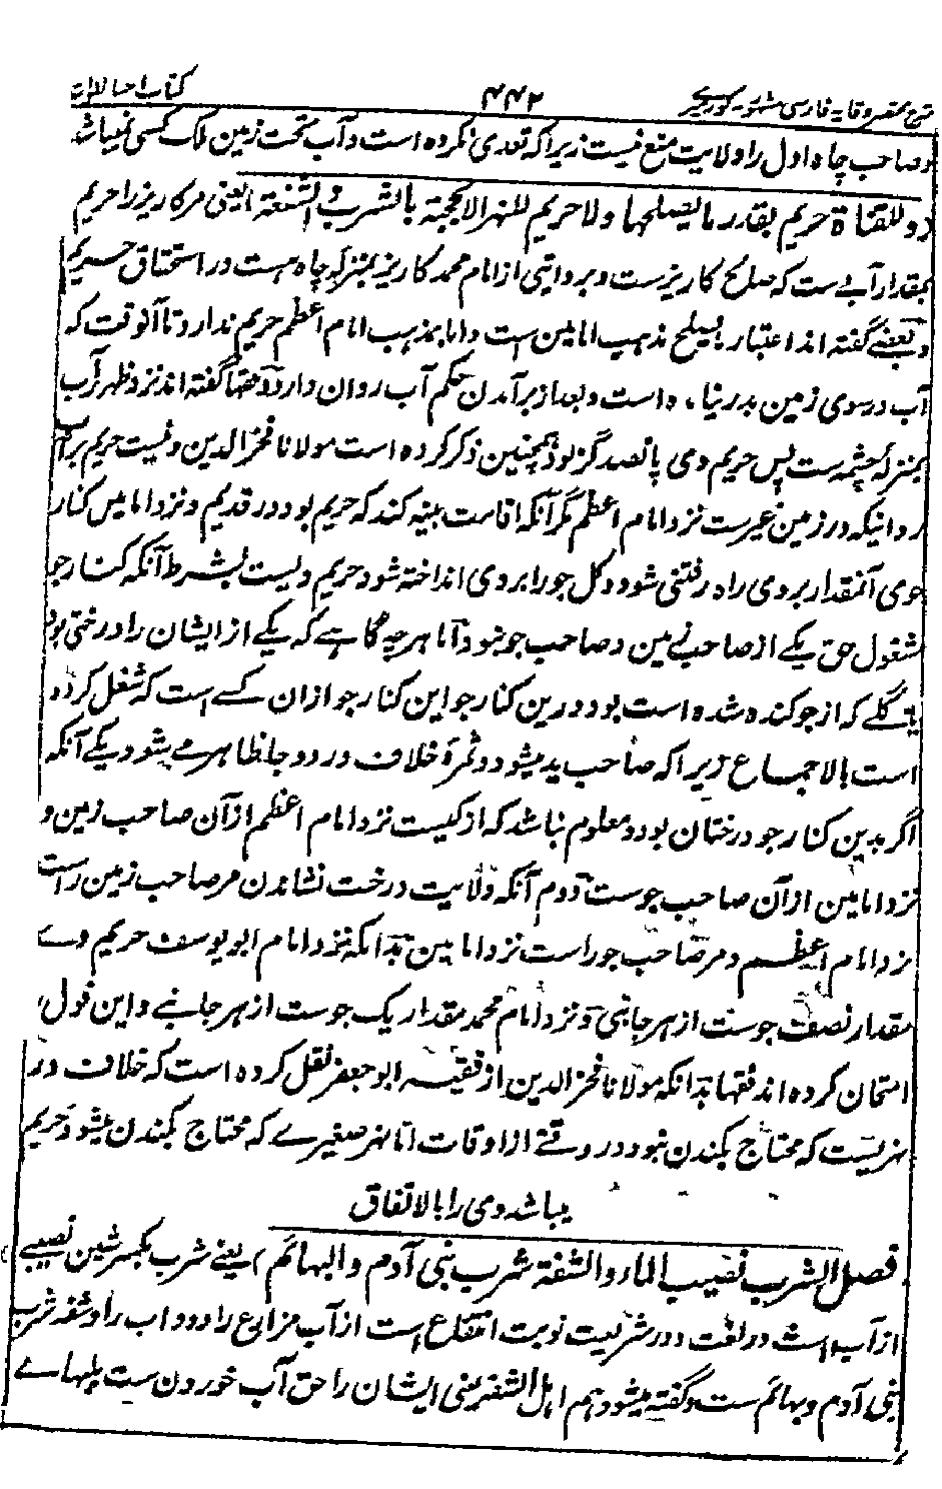 شرح مختصر وقایه فارسی ۴۴۲ کتاب احیاء الموات
وصاحب چاه اول را ولایت منع نیست زیرا که تعدی نکرده است و آب تحت زمین ملک کسی نمیباشد
وللقناة حریم بقدر ما یصلحها ولا حریم للنهر الا بحجة یعنی مر کاریز را حریم
بمقدار آبی ست که صالح کاریز ست و بروایتی از امام محمد کاریز بمنزله چاه ست در استحقاق حریم
و بعضے گفته اند اعتبار مذهب امامین ست و اما بمذهب امام اعظم حریم ندارد تا آنوقت که
آب در روی زمین بدر نیامده است و بعد از برآمدن حکم آب روان دارد گفته اند نزد ظهر آب
بمنزله چشمه ست پس حریم وی پانصد گز بود همچنین ذکر کرده است مولانا فخر الدین و نیست حریم
در زمین غیرست نزد امام اعظم مگر آنکه اقامت بینه کند که حریم بود در قدیم و نزد امامین کنار
جوی آنمقدار بروی راه رفتنی شود و گل جو را بروی انداخته شود حریم ویست بشرط آنکه کنار جو
مشغول حق یکے از صاحب زمین و صاحب جو نبود اما هرچه گاهے که یکے از ایشان را درختی بود
یا گلے که از جو کنده شده است بود درین کنار جو این کنار جو ازان کسے ست که شغل کرده
است بالاجماع زیرا که صاحب ید میشود و ثمرهٔ خلاف در دو جا ظاهر مے شود یکے آنکه
اگر بدین کنار جو درختان بود و معلوم نباشد که از کیست نزد امام اعظم ازآن صاحب زمین و
نزد امامین ازآن صاحب جوست دوم آنکه ولایت درخت نشاندن مر صاحب زمین راست
نزد امام اعظم و مر صاحب جو راست نزد امامین بدانکه نزد امام ابویوسف حریم وے
مقدار نصف جوست از هر جانبی و نزد امام محمد مقدار یک جوست از هر جانبے و این قول
امتحان کرده اند فقها بدانکه مولانا فخر الدین از فقیه ابو جعفر نقل کرده است که خلاف در
نهریست که محتاج بکندن نبود در وقتے از اوقات اما نهر صغیرے که محتاج بکندن میشود حریم
یباشد وی را بالاتفاق
فصل الشرب نصیب الماء والشفة شرب بنی آدم والبهائم) یعنے شرب بکسر شین نصیبے
از آب است در لغت و در شریعت نوبت انتفاع است از آب مزارع را و دواب را و شفه شرب
بنی آدم و بهائم ست و گفته میشود هم اهل الشفه یعنی ایشان را حق آب خوردن ست بلبهاے